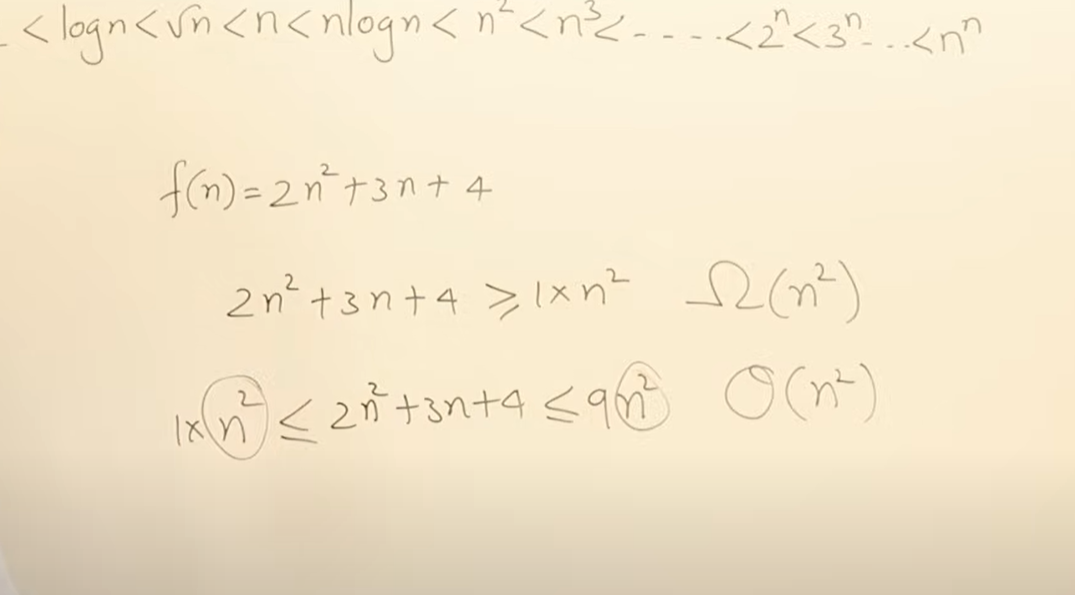 < logn < √n < n < nlogn < n² < n³ < - - - - . . < 2ⁿ < 3ⁿ - . . < nⁿ
f(n) = 2n² + 3n + 4
2n² + 3n + 4 ⩾ 1 × n² Ω(n²)
1 × n² ≤ 2n² + 3n + 4 ≤ 9n² O(n²)